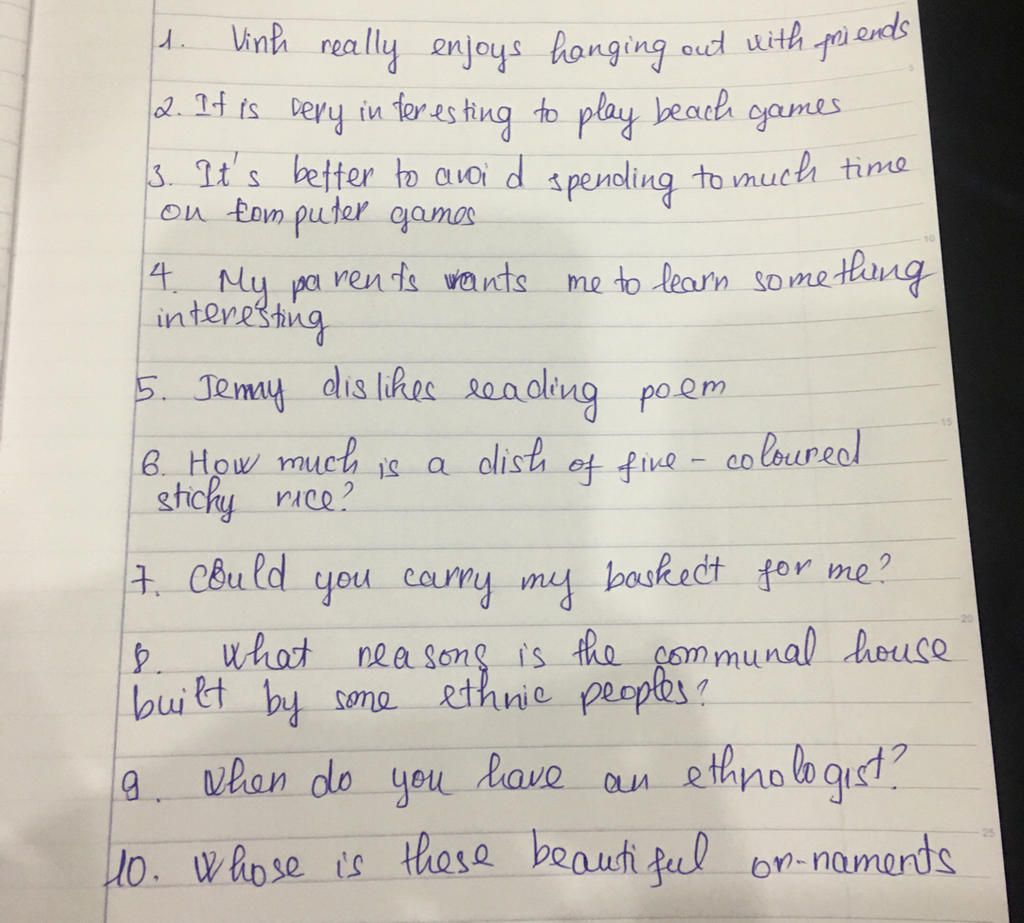 1. Vinh really enjoys hanging out with friends
2. It is very interesting to play beach games
3. It's better to avoid spending to much time
on computer games
4. My parents wants me to learn something
interesting
5. Jenny dislikes reading poem
6. How much is a dish of five - coloured
sticky rice?
7. Could you carry my baskect for me?
8. What reasons is the communal house
built by some ethnic peoples?
9. When do you have an ethnologist?
10. Whose is these beautiful or-naments
5
10
15
20
25